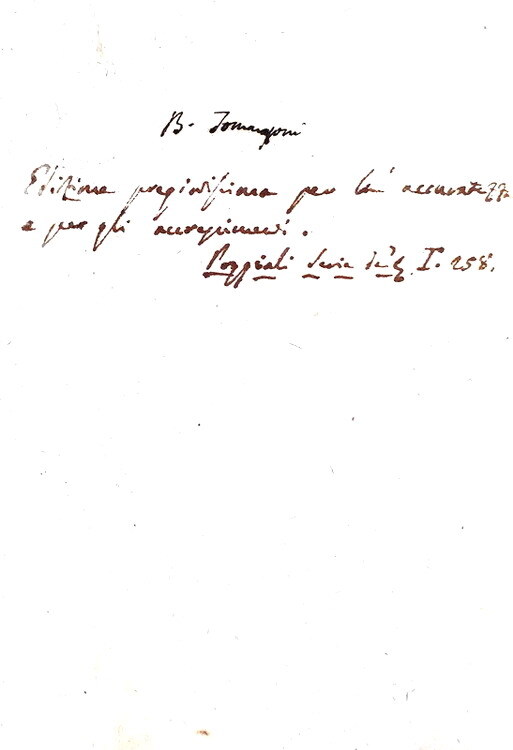 B. Tomazzoni
Edizione pregiatissima per la accuratezza
e per gli accrescimenti.
Poggiali Serie I. 258.